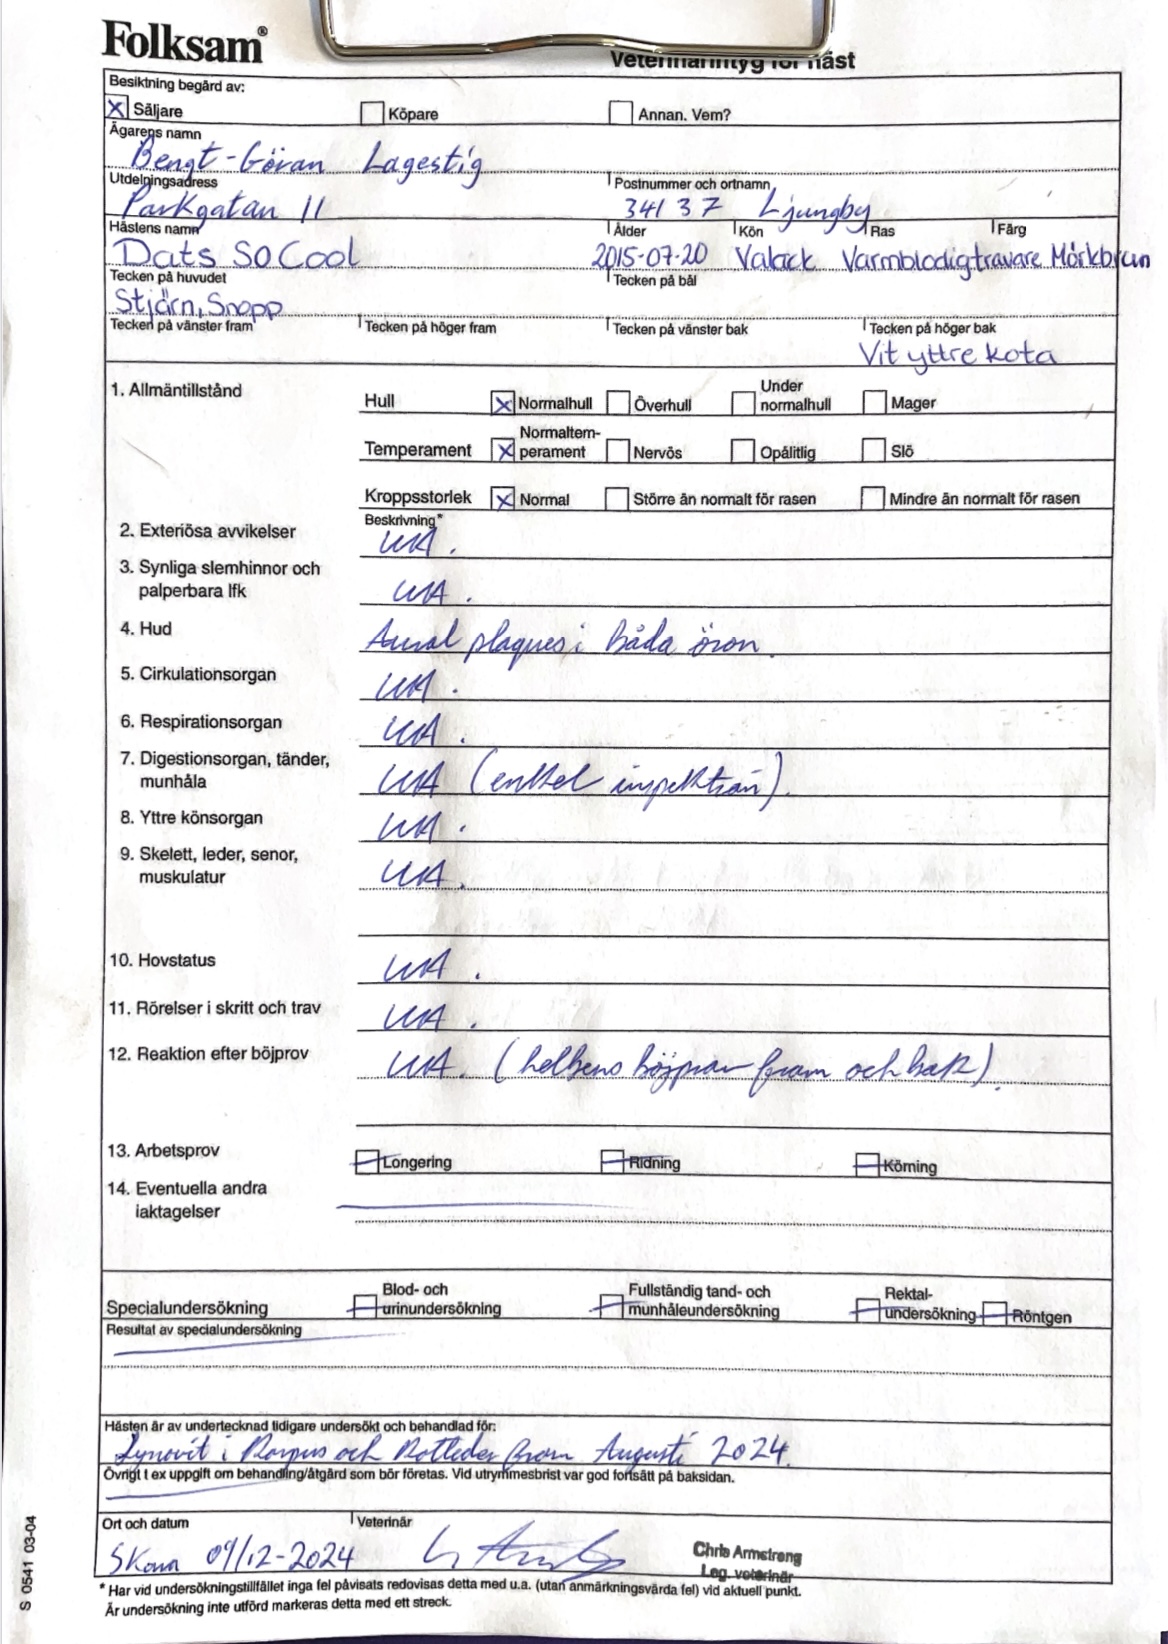 Folksam®
Veterinärintyg för häst
Besiktning begärd av:
Säljare Köpare Annan. Vem?
Ägarens namn
Bengt-Göran Lagestig
Utdelningsadress Postnummer och ortnamn
Parkgatan 11 341 37 Ljungby
Hästens namn Ålder Kön Ras Färg
Dats So Cool 2015-07-20 Valack Varmblodigtravare Mörkbrun
Tecken på huvudet Tecken på bål
Stjärn, Snopp
Tecken på vänster fram Tecken på höger fram Tecken på vänster bak Tecken på höger bak
Vit yttre kota
1. Allmäntillstånd
Hull Normalhull Överhull Under normalhull Mager
Temperament Normaltem-perament Nervös Opålitlig Slö
Kroppsstorlek Normal Större än normalt för rasen Mindre än normalt för rasen
Beskrivning*
2. Exteriösa avvikelser UA.
3. Synliga slemhinnor och
palperbara lfk UA.
4. Hud Aural plaques i båda öron.
5. Cirkulationsorgan UA.
6. Respirationsorgan UA.
7. Digestionsorgan, tänder,
munhåla UA (enkel inspektion).
8. Yttre könsorgan UA.
9. Skelett, leder, senor,
muskulatur UA.
10. Hovstatus UA.
11. Rörelser i skritt och trav UA.
12. Reaktion efter böjprov UA. (helbens böjprov fram och bak).
13. Arbetsprov Longering Ridning Körning
14. Eventuella andra
iaktagelser
Specialundersökning Blod- och urinundersökning Fullständig tand- och munhåleundersökning Rektal-undersökning Röntgen
Resultat av specialundersökning
Hästen är av undertecknad tidigare undersökt och behandlad för:
Synovit i Karpus och Kotleder fram Augusti 2024.
Övrigt t ex uppgift om behandling/åtgärd som bör företas. Vid utrymmesbrist var god fortsätt på baksidan.
Ort och datum Veterinär
09/12-2024
Chris Armstrong
Leg. veterinär
* Har vid undersökningstillfället inga fel påvisats redovisas detta med u.a. (utan anmärkningsvärda fel) vid aktuell punkt.
Är undersökning inte utförd markeras detta med ett streck.
S 0541 03-04